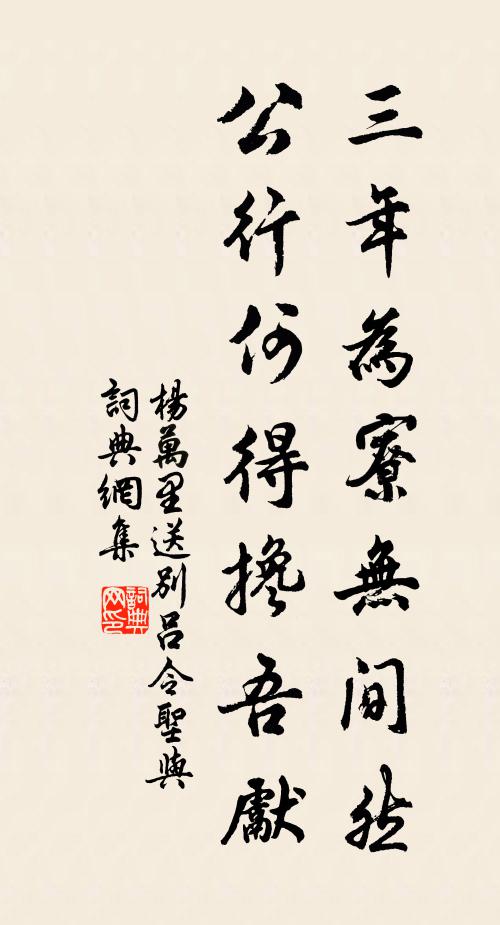 三年為寮無間然
公行何得攙吾獻
楊萬里送別呂令聖與
詞典網集
詞典网印